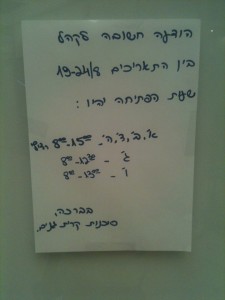 הודעה חשובה לקהל
בין התאריכים 19-24/8
שעות הפתיחה יהיו :
א', ב', ד', ה' - 8⁰⁰-15⁰⁰
ג' - 8⁰⁰-12⁰⁰
ו' - 8⁰⁰-13⁰⁰
בברכה,
סוכנות קרית גנים.